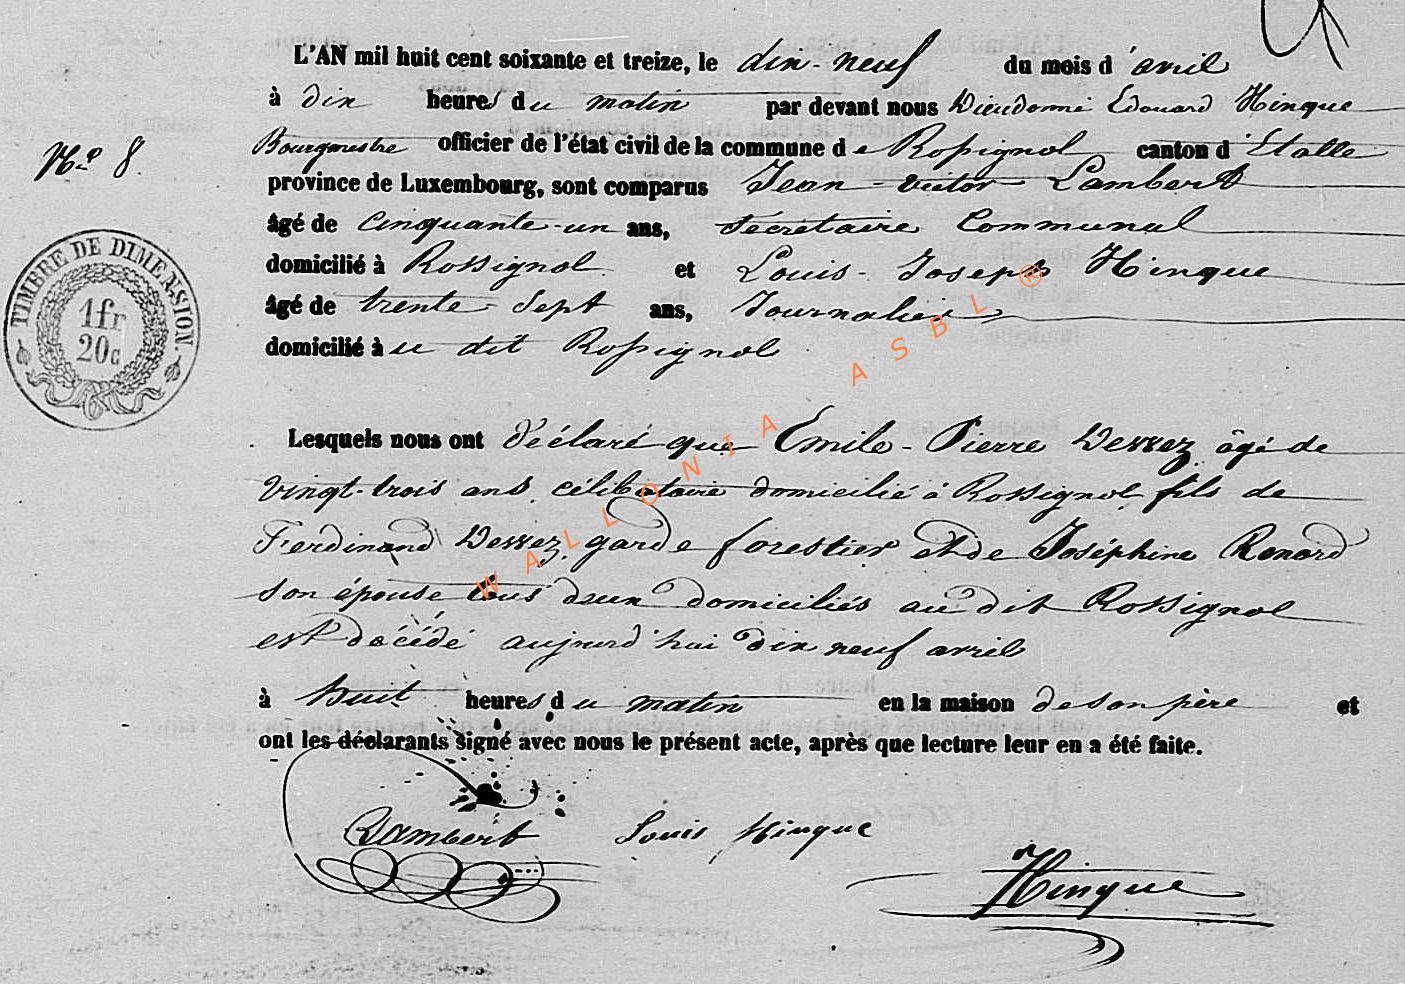 L'AN mil huit cent soixante et treize, le dix-neuf du mois d'avril
à dix heures du matin par devant nous Dieudonné Edouard Hinque
N.o 8. Bourgmestre officier de l'état civil de la commune de Rossignol canton d'Etalle
province de Luxembourg, sont comparus Jean-Victor Lambert
âgé de cinquante-un ans, Secrétaire Communal
domicilié à Rossignol et Louis-Joseph Hinque
âgé de trente sept ans, Journalier
domicilié au dit Rossignol
TIMBRE DE DIMENSION
1fr
20c
Lesquels nous ont déclaré que Emile-Pierre Dessez âgé de
vingt-trois ans, célibataire domicilié à Rossignol, fils de
Ferdinand Dessez, garde forestier et de Joséphine Renard
son épouse tous deux domiciliés au dit Rossignol
est décédé aujourd'hui dix neuf avril
à huit heures du matin en la maison de son père et
ont les déclarants signé avec nous le présent acte, après que lecture leur en a été faite.
Lambert Louis Hinque
Hinque
WALLONIA ASBL ®